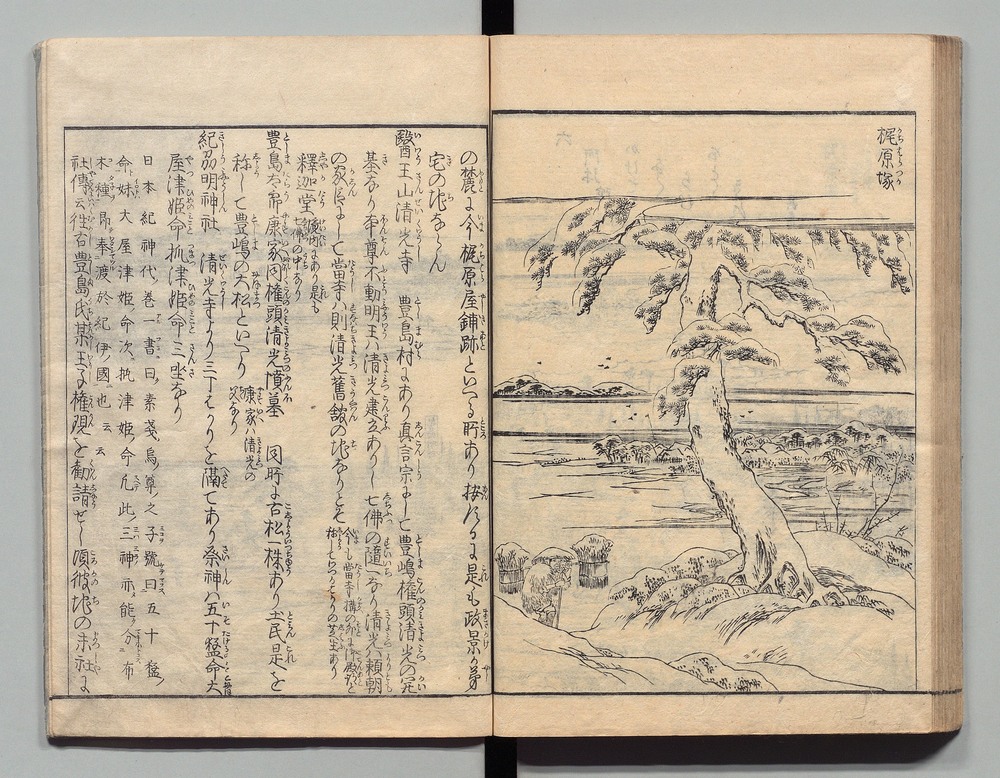 梶原塚
の麓に今梶原屋鋪跡といへる所あり按ずるに是も政景が第
宅の地ならん
醫王山清光寺　豊島村にあり真言宗にして豊嶋権頭清光の開
基なり本尊不動明王ハ清光建立ありし七佛の随一なり清光ハ頼朝
の
釋迦堂　境内にあり是も七佛の中なり
豊島太郎康家同権頭清光墳墓　同所に古松一株あり土民是を
称して豊嶋の大松といへり　康家ハ清光の父なり
紀州明神社　清光寺より三丁をかりを隔てあり祭神ハ五十猛命大
屋津姫命抓津姫命三坐なり
日本紀神代巻一書曰素戔烏尊之子號曰五十猛
命妹大屋津姫命次抓津姫命凡此三神亦能分布
木種即奉渡於紀伊國也云云
社傳云往古豊島氏某王子権現を勧請せし頃彼地の末社に